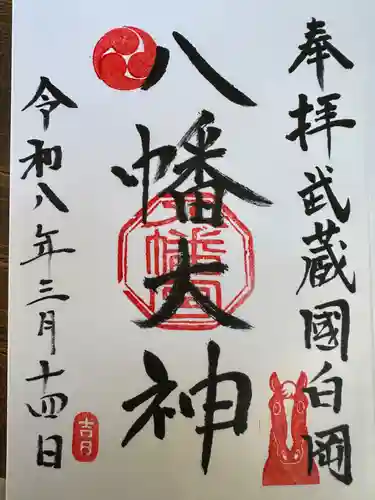 奉拝武蔵國白岡
八幡大神
令和八年三月十四日
吉日